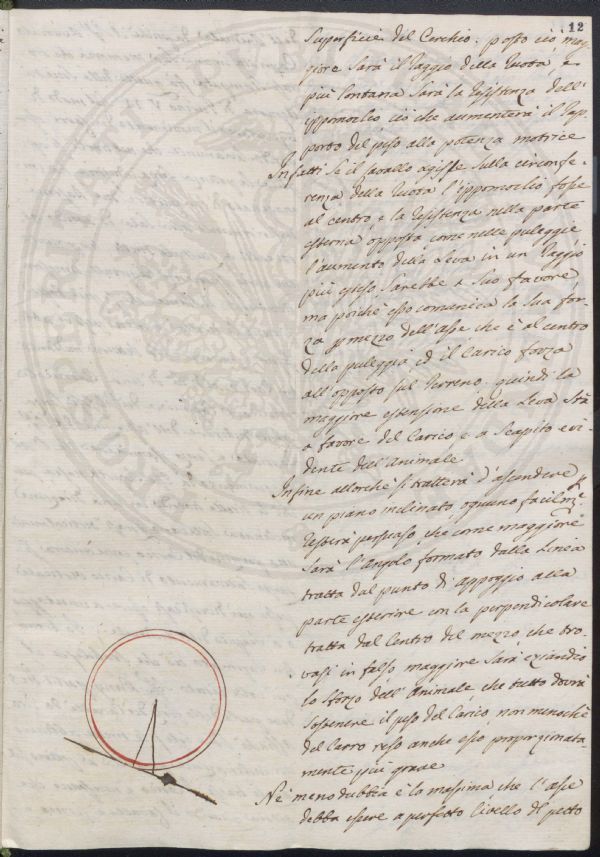 12
superficie del Cerchio: posto ciò, mag-
giore sarà il raggio della ruota, e
più lontana sarà la resistenza dell'
ippomoclio ciò che aumenterà il rap-
porto del peso alla potenza motrice
Infatti se il cavallo agisse sulla circonfe-
renza della ruota l'ippomoclio fosse
al centro, e la resistenza nella parte
esterna opposta come nelle puleggie
l'aumento della leva in un raggio
più esteso sarebbe a suo favore
ma poiche esso comunica la sua for-
za p mezzo dell'asse che è al centro
della puleggia, ed il carico forza
all'opposto sul terreno. quindi la
maggiore estensione della leva stà
a favore del Carico, e a scapito evi-
dente dell'animale
Infine allorchè si tratterà d'ascendere
un piano inclinato ognuno facilm.e
resterà persuaso che come maggiore
sarà l'angolo formato dalla linea
tratta dal punto di appoggio alla
parte esteriore con la perpendicolare
tratta dal Centro del mezzo che tro-
vasi in falso maggiore sarà eziandio
lo sforzo dell'animale che tutto dovrà
sostenere il peso del Carico, non menochè
del Carro reso anche esso proporzionata-
mente più grave
Nè meno dubbia è la massima che l'asse
debba essere a perfetto livello del petto